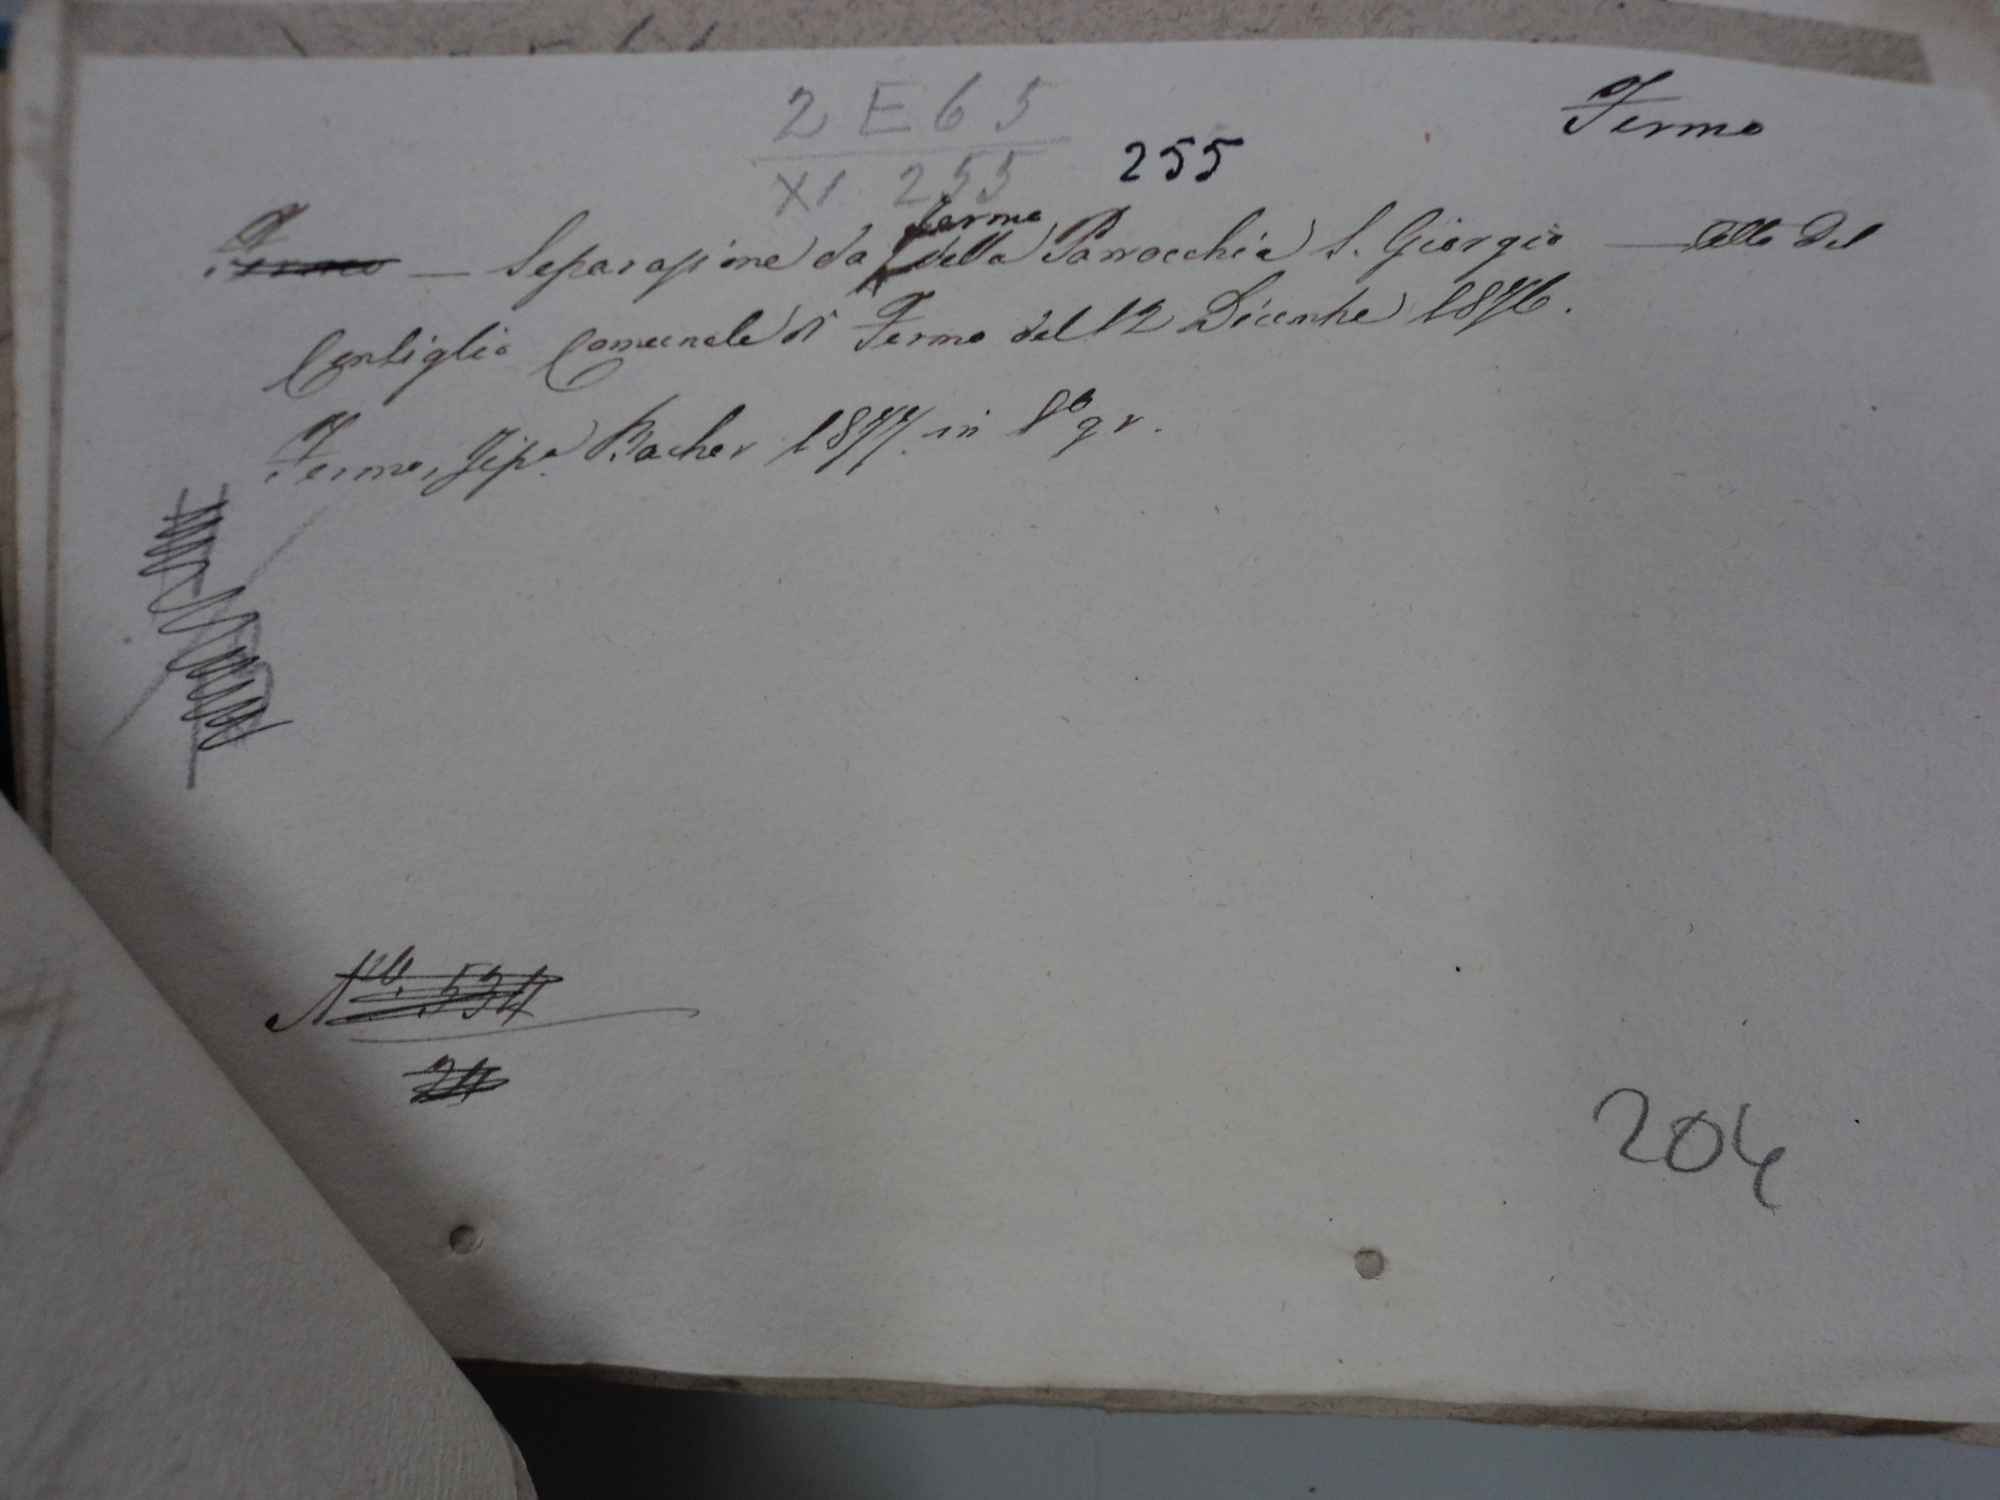 2 E 65
XI 255
255
Fermo
Fermo
Fermo — Separazione da della Parrocchia S. Giorgio — Atto del
Consiglio Comunale di Fermo del 12 Dicembre 1876.
Fermo, Tip.ª Bacher 1877. in 8º gr.
Nº. 534
24
204